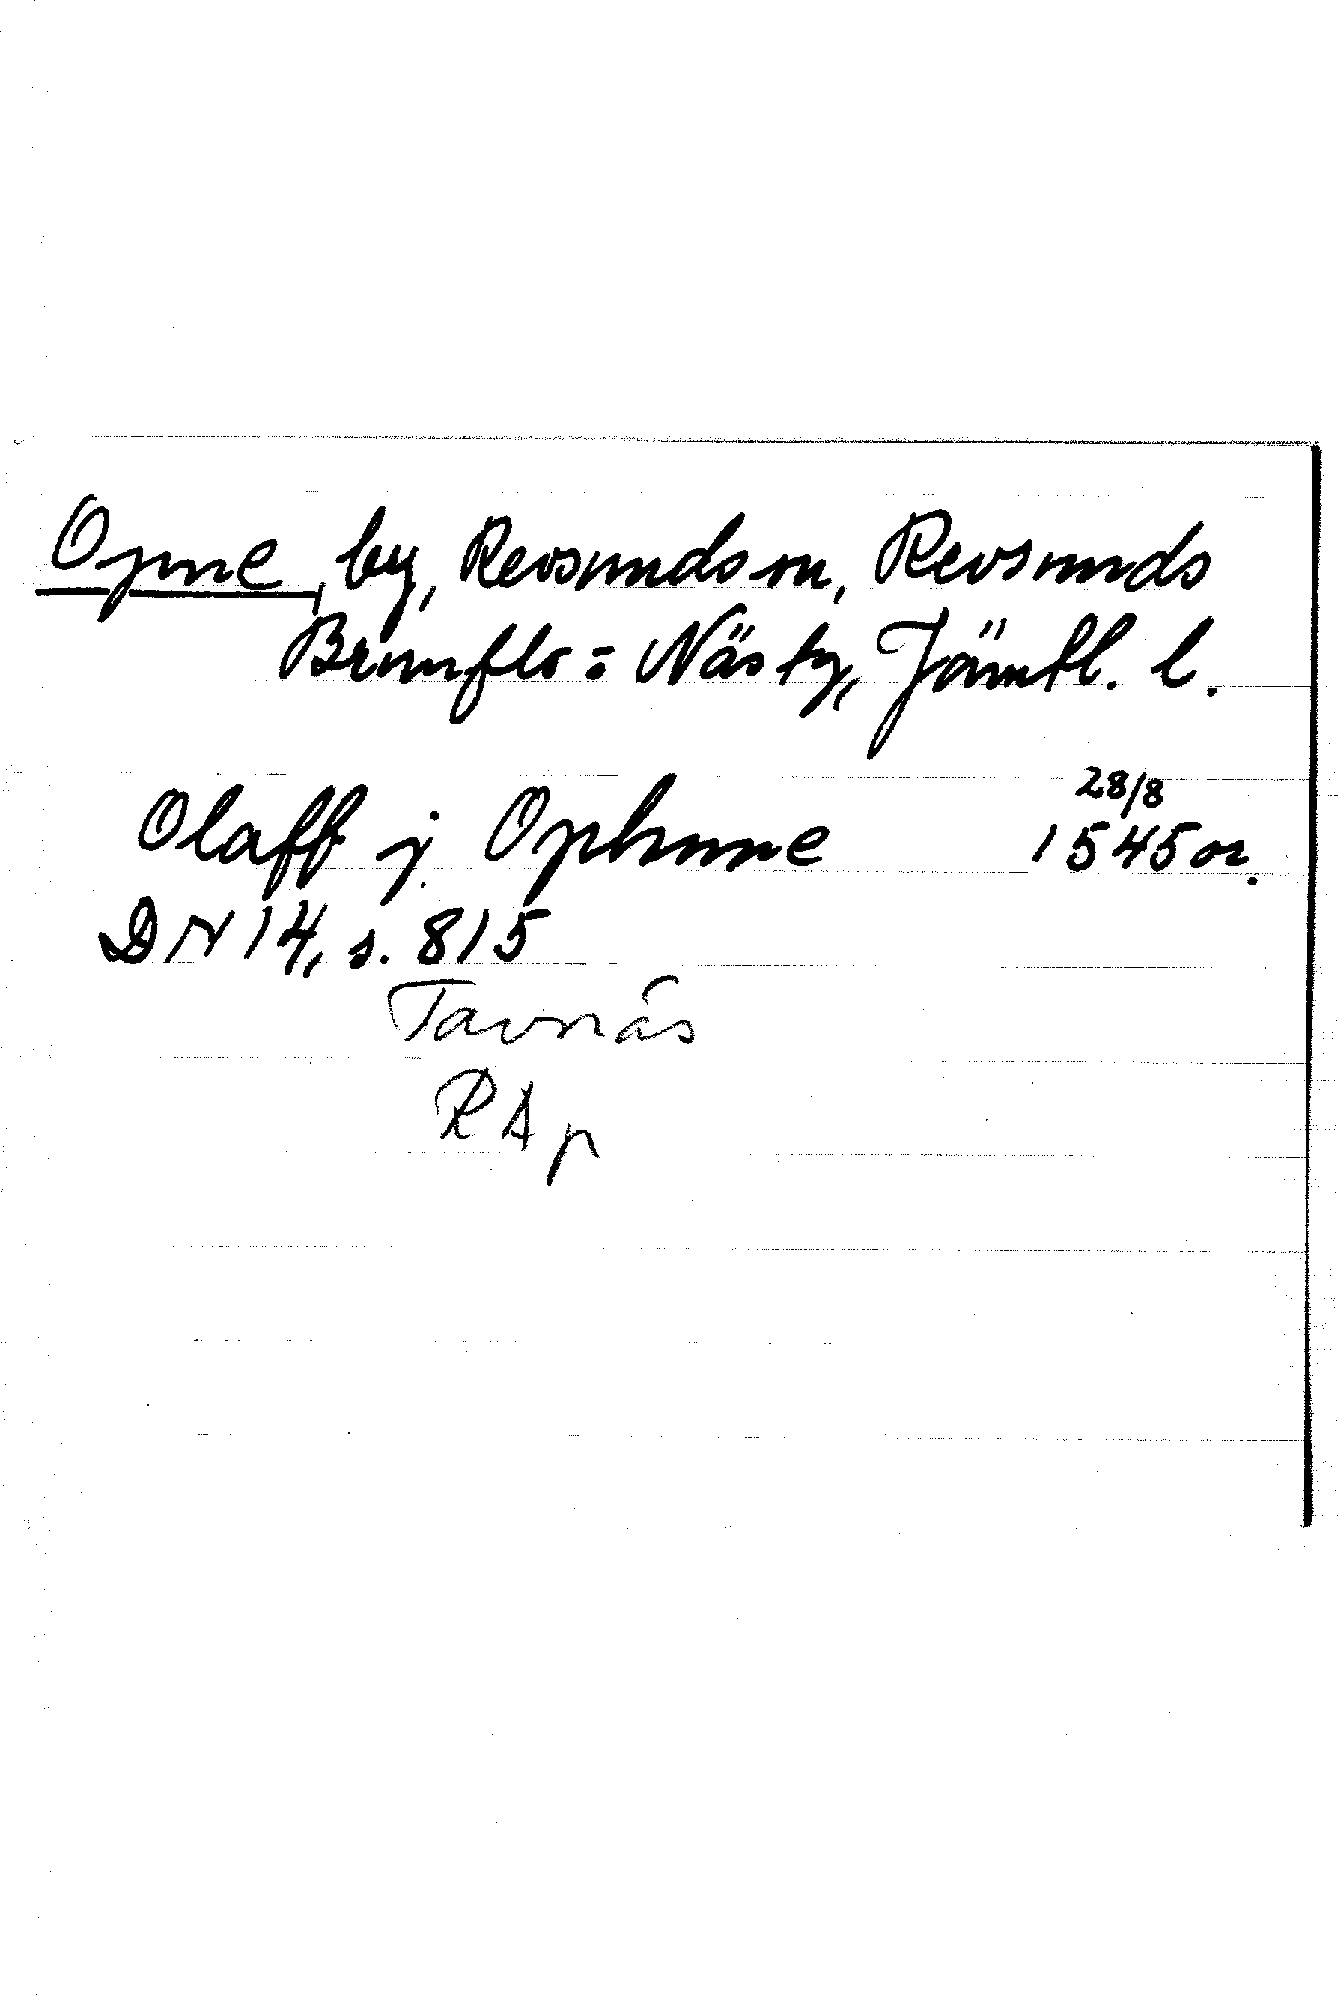 Opne, by, Revsunds sn, Revsunds
Brunflo = Näs tg, Jämtl. l.
Olaff j Ophnne 28/8 1545 or.
DN 14, s. 815
Tavnäs
RAp